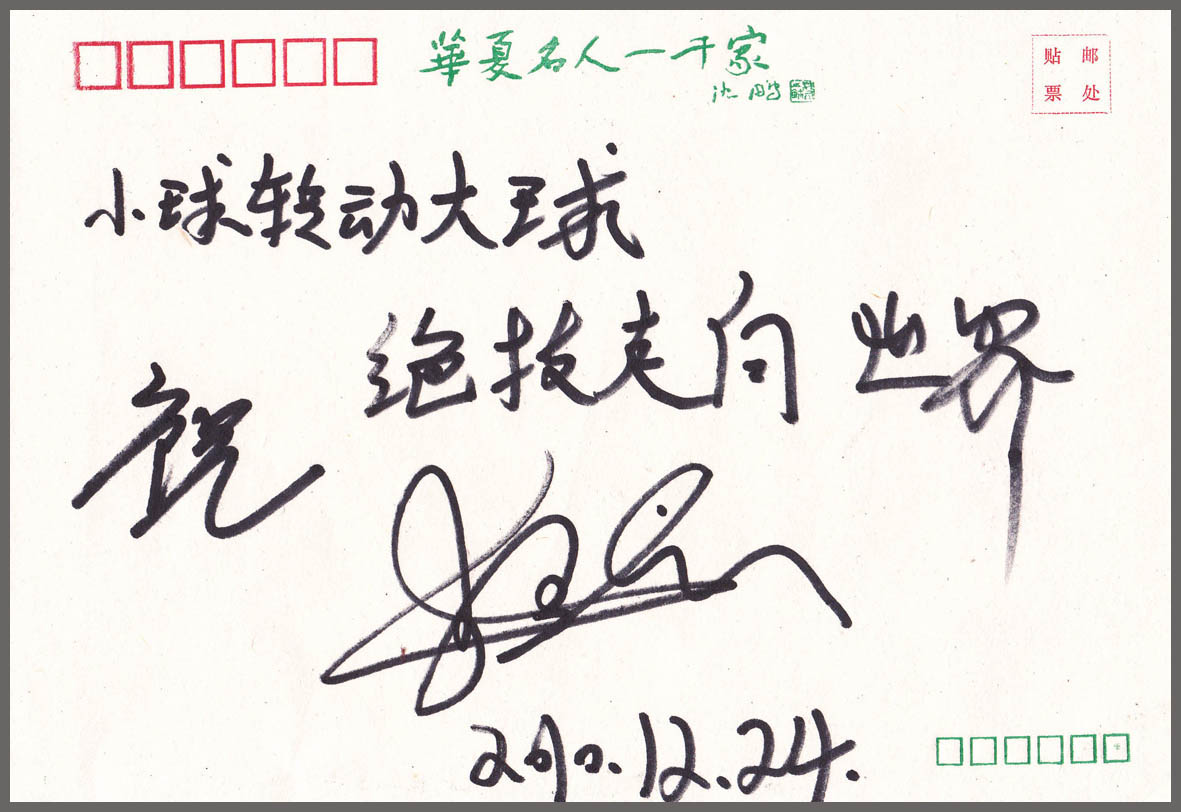 華夏名人一千家
沈鹏
贴 邮
票 处
小球转动大球
绝技走向世界
祝
2010.12.24.